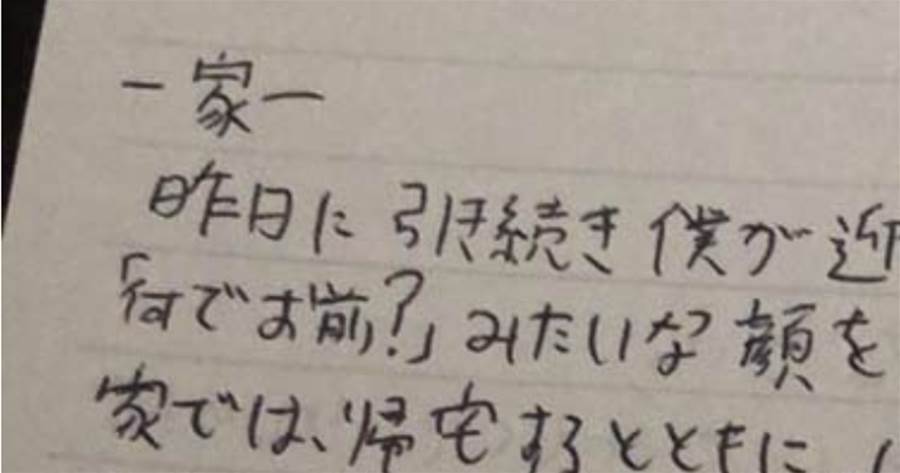 －家－
昨日に引き続き僕が近
「何でお前?」みたいな顔を
家では、帰宅するとともに